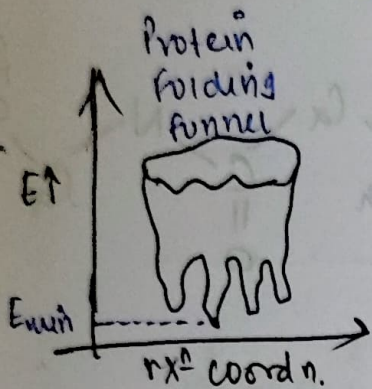 Protein
Folding
funnel
E↑
Emin
rxⁿ coordn.